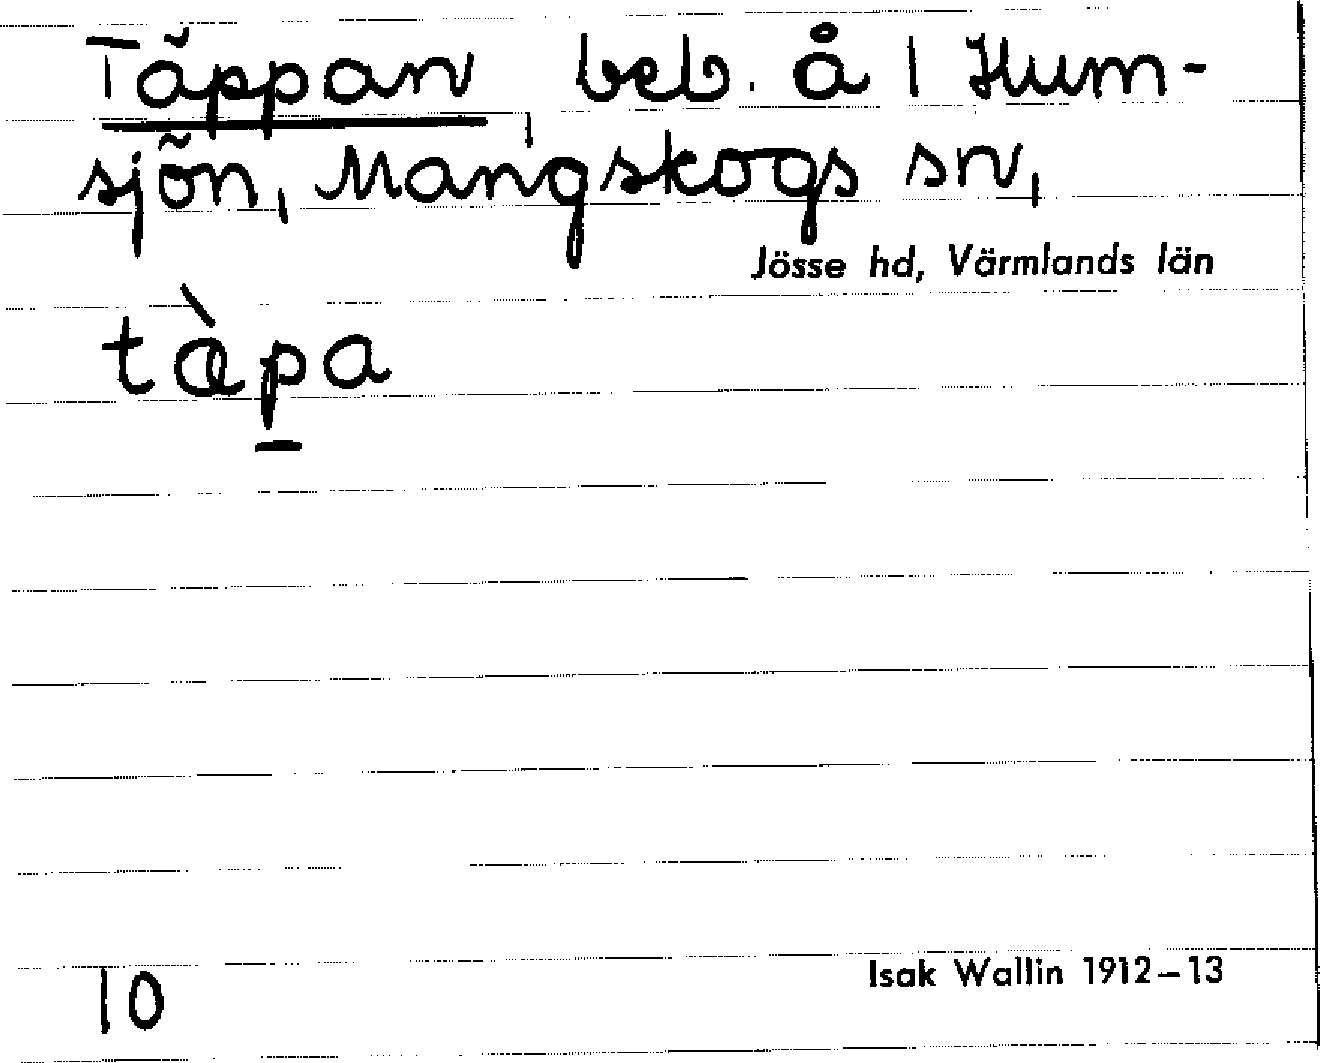 Täppan beb. å 1 Hum-
sjön, Mangskogs sn,
Jösse hd, Värmlands län
tàpa
10
Isak Wallin 1912–13